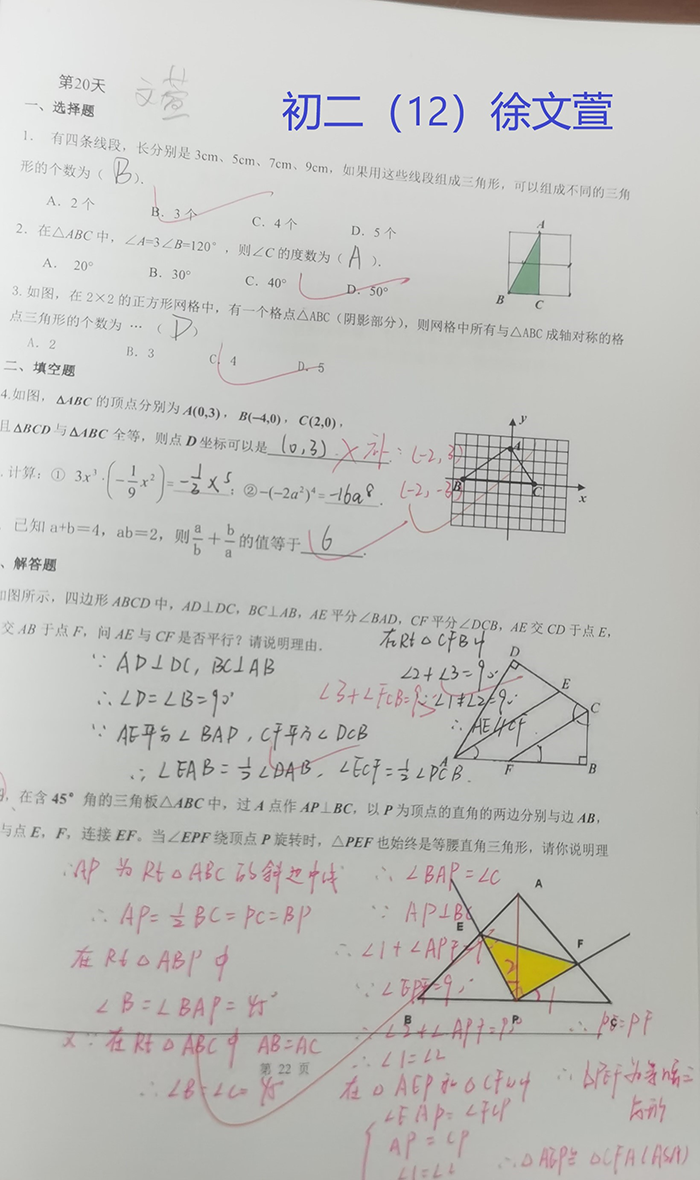 第20天
文萱
初二（12）徐文萱
一、选择题
1. 有四条线段，长分别是 3cm、5cm、7cm、9cm，如果用这些线段组成三角形，可以组成不同的三角
形的个数为（ B ）.
A. 2个 B. 3个 C. 4个 D. 5个
2. 在△ABC 中，∠A=3∠B=120°，则∠C 的度数为（ A ）.
A. 20° B. 30° C. 40° D. 50°
3. 如图，在 2×2 的正方形网格中，有一个格点△ABC（阴影部分），则网格中所有与△ABC 成轴对称的格
点三角形的个数为 …（ D ）
A. 2 B. 3 C. 4 D. 5
A
B C
二、填空题
4.如图，△ABC 的顶点分别为 A(0,3)，B(-4,0)，C(2,0)，
且△BCD 与△ABC 全等，则点 D 坐标可以是 (0,3) . × 补：(-2,3)
(-2,-3)
y
A
B C x
. 计算：① 3x³·(-1/9 x²)= -1/3 x⁵ ；②-(-2a²)⁴= -16a⁸ .
. 已知 a+b＝4，ab＝2，则 a/b + b/a 的值等于 6 .
、解答题
如图所示，四边形 ABCD 中，AD⊥DC，BC⊥AB，AE 平分∠BAD，CF 平分∠DCB，AE 交 CD 于点 E，
交 AB 于点 F，问 AE 与 CF 是否平行？请说明理由.
∵ AD⊥DC, BC⊥AB
∴ ∠D=∠B=90°
∵ AE平分∠BAD, CF平分∠DCB
∴ ∠EAB=½∠DAB, ∠ECF=½∠DCB.
在Rt△CFB中
∠2+∠3=90°
∠3+∠FCB=90° ∵∠1+∠2=90°
∴ AE∥CF
D
E
C
A F B
，在含 45°角的三角板△ABC 中，过 A 点作 AP⊥BC，以 P 为顶点的直角的两边分别与边 AB，
与点 E，F，连接 EF。当∠EPF 绕顶点 P 旋转时，△PEF 也始终是等腰直角三角形，请你说明理
∵AP 为Rt△ABC的斜边中线
∴ AP=½BC=PC=BP
在Rt△ABP中
∠B=∠BAP=45°
又∵在Rt△ABC中 AB=AC
∴∠B=∠C=45°
∴ ∠BAP=∠C
∵ AP⊥BC
∴ ∠1+∠APF=90°
∵∠EPF=90°
∴∠2+∠APF=90°
∴∠1=∠2
在△AEP和△CFP中
∠EAP=∠FCP
AP=CP
∠1=∠2
∴△AEP≌△CFP(ASA)
∴ PE=PF
∴ △PEF为等腰三
角形
A
E F
2
1
B P C
第 22 页